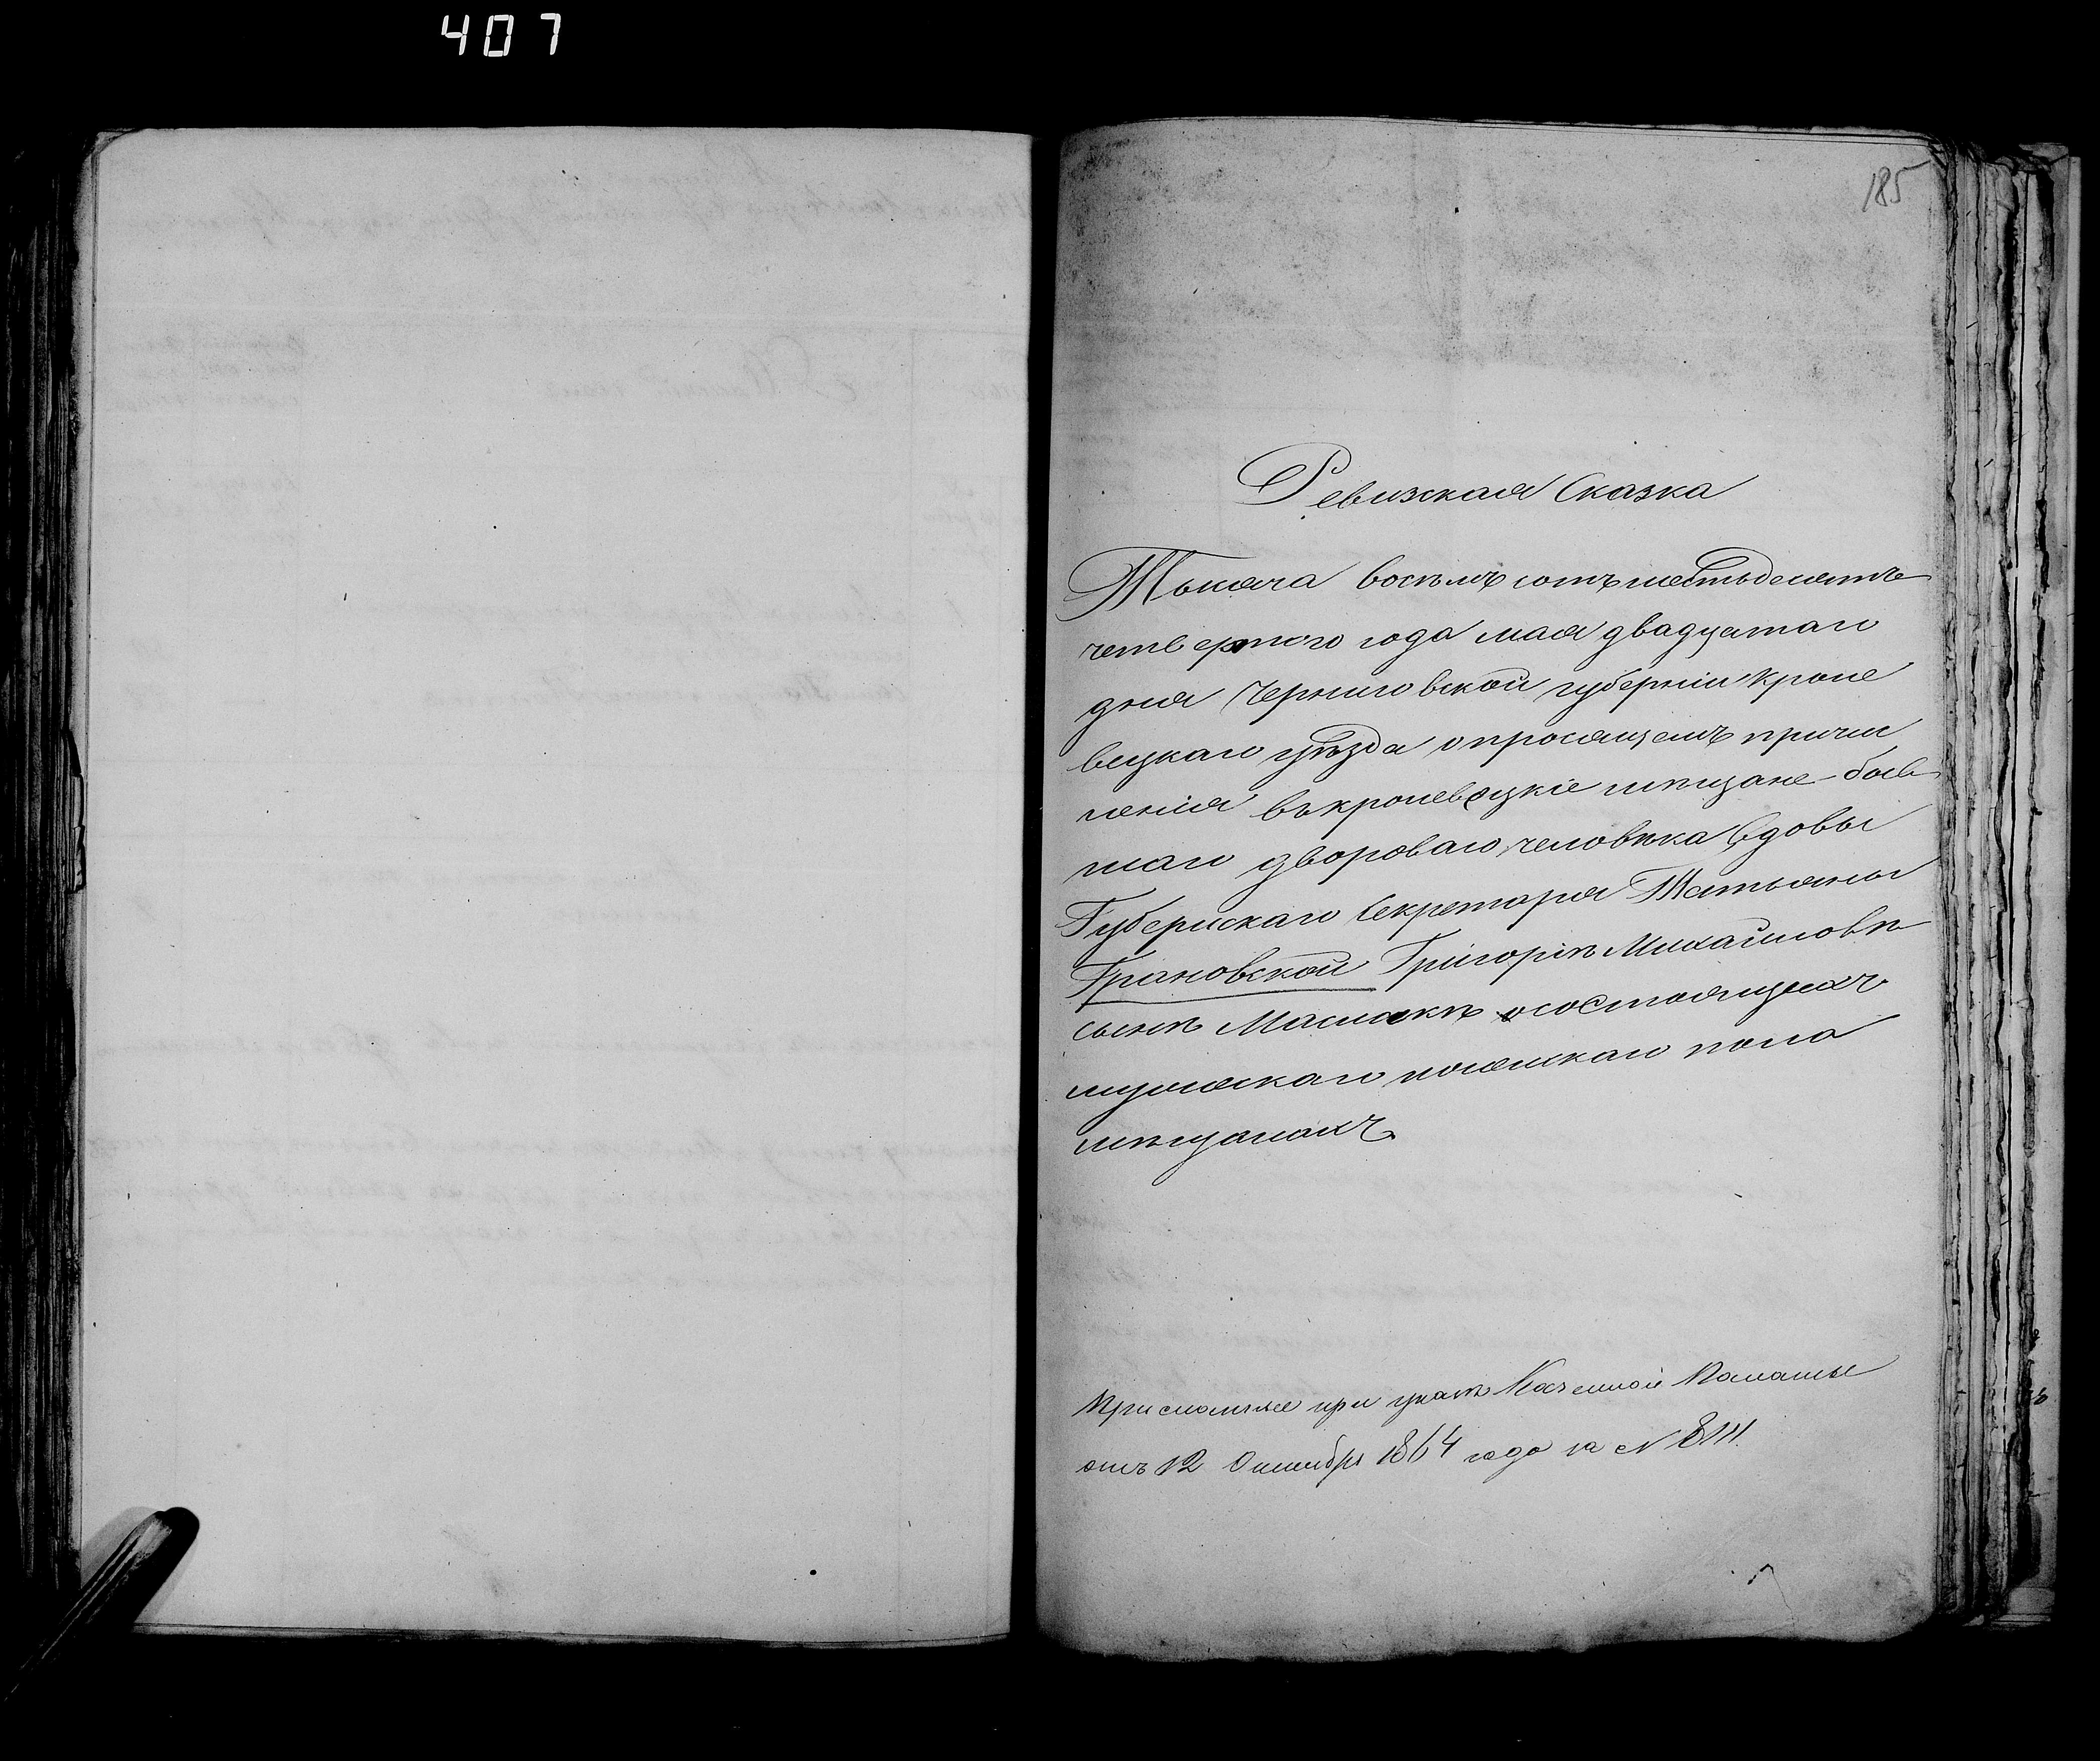 407
185
Ревизская Сказка
Тысяча восемъ сотъ шестьдесятъ
четвертого года мая двадцатаго
дня Черниговской губерніи Кроле
вецкаго уѣзда о просящемъ причис
ленія въ кролевецкіе мѣщане быв
шаго двороваго человѣка Вдовы
Губернскаго Секретаря Татьяны
Грановской Григоріѣ Михайловѣ
сынѣ Маслакѣ и состоящихъ
мужескаго женскаго пола
мѣщанахъ
Присланная при указѣ Казенной Палаты
отъ 12 Октября 1864 года за №